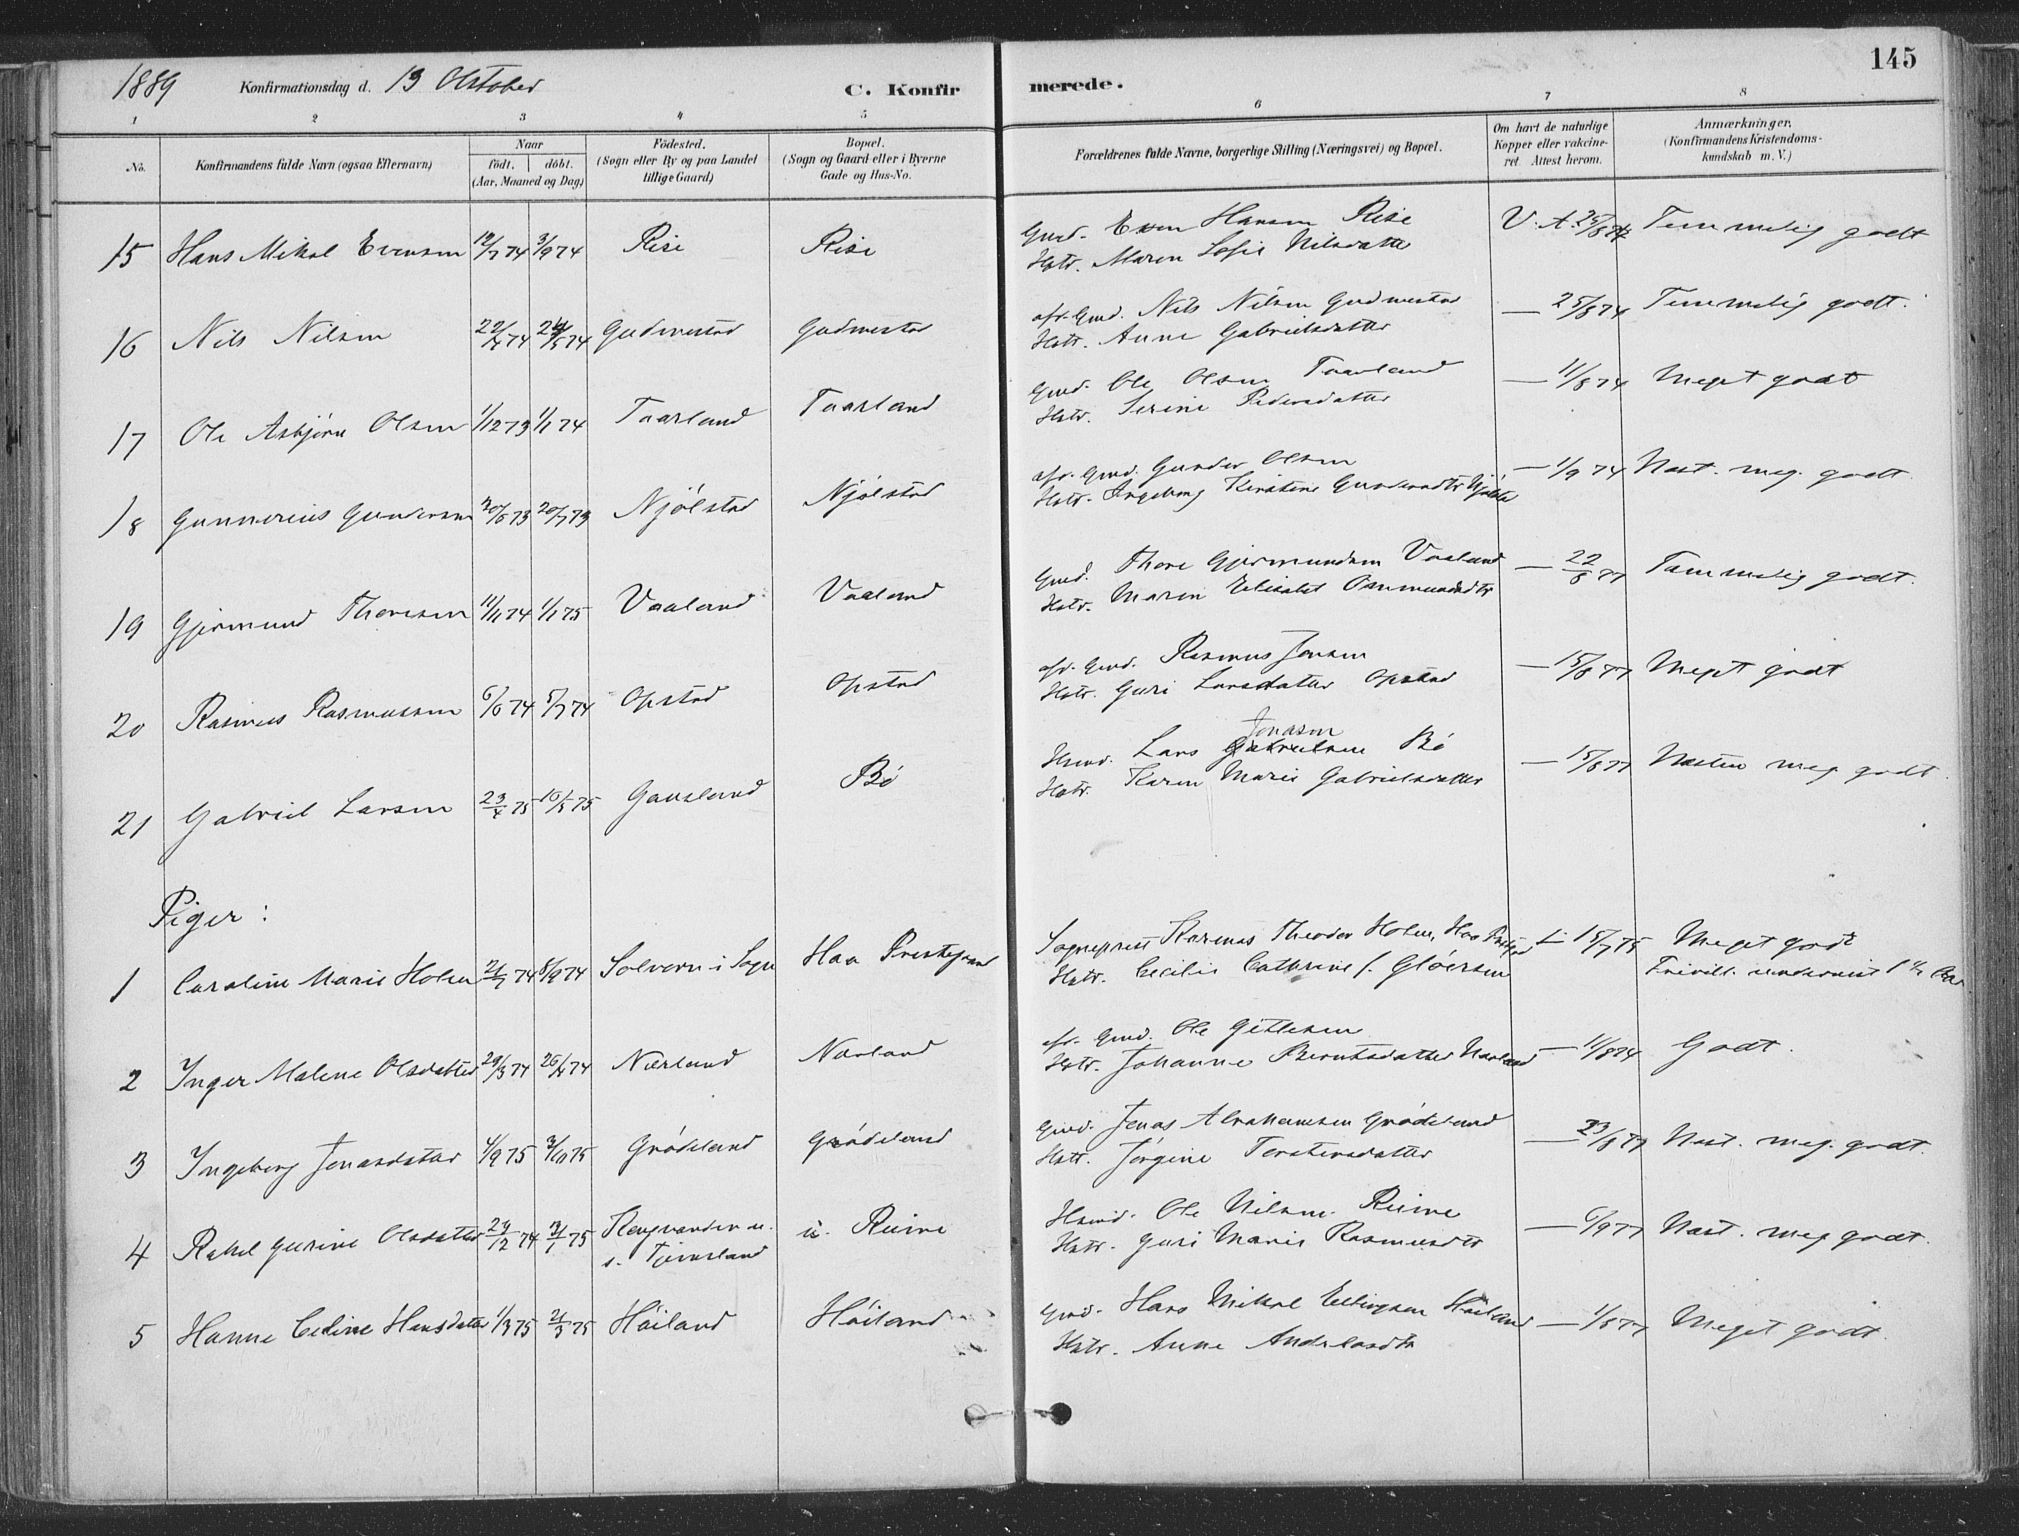 145
1889 Konfirmationsdag d. 13 Oktober C. Konfirmerede.
1 2 3 4 5 6 7 8
No. Konfirmandens fulde Navn (ogsaa Efternavn) Naar födt. döbt. (Aar, Maaned og Dag) Födested. (Sogn eller By og paa Landet tillige Gaard) Bopæl. (Sogn og Gaard eller i Byerne Gade og Hus-No. Forældrenes fulde Navne, borgerlige Stilling (Næringsvei) og Bopæl. Om havt de naturlige Kopper eller vakcineret. Attest herom. Anmærkninger. (Konfirmandens Kristendomskundskab m. V.)
15 Hans Mikal Evensen 12/7 74 3/9 74 Rise Rise Gmd. Even Hansen Rise V. A. 25/8 74 Temmelig godt
Hstr. Maren Sofie Nilsdatter
16 Nils Nilsen 22/4 74 24/5 74 Gudmestad Gudmestad afr. Gmd. Nils Nilsen Gudmestad — 25/8 74 Temmelig godt.
Hstr. Anne Gabrielsdatter
17 Ole Asbjørn Olsen 1/12 73 1/1 74 Taarland Taarland Gmd. Ole Olsen Taarland — 11/8 74 Meget godt
Hstr. Serine Pedersdatter
18 Gunnerius Gundersen 20/6 73 20/7 73 Njölstad Njölstad afr. Gmd. Gunder Olsen — 1/9 74 Næst. meg. godt
Hstr. Ingeborg Kirstine Gundersdtr Njölstad
19 Gjermund Thoresen 11/11 74 1/1 75 Vaaland Vaaland Gmd. Thore Gjermundsen Vaaland — 22/8 77 Temmelig godt.
Hstr. Maren Elisabet Osmundsdtr
20 Rasmus Rasmussen 6/6 74 5/7 74 Opstad Opstad afr. Gmd. Rasmus Jonsen — 15/8 77 Meget godt
Hstr. Guri Larsdatter Opstad
21 Gabriel Larsen 23/4 75 16/5 75 Gausland Bö Hsmd. Lars Jonasen Bö — 15/8 77 Næsten meg godt.
Hstr. Karen Marie Gabrielsdatter
Piger:
1 Caroline Marie Holen 21/7 74 8/9 74 Solvorn i Sogn Haa Prestegaard Sogneprest Karenus Theodor Holen, Haa Prstgrd — 15/7 75 Meget godt
Hstr. Cecilie Cathrine f. Glöersen
2 Inger Malene Olsdatter 29/3 74 26/4 74 Nærland Nærland afr. Gmd. Ole Gitlesen — 11/8 74 Godt.
Hstr. Johanne Berntsdatter Nærland
3 Ingeborg Jonasdatter 4/9 75 3/10 75 Grödeland Grödeland Gmd. Jonas Abrahamsen Grödeland — 23/8 77 Næst. meg. godt.
Hstr. Jörgine Torstensdatter
4 Rakel Gurine Olsdatter 24/12 74 3/1 75 u. Reime Hsmd. Ole Nilsen Reime — 6/9 77 Næst. meg godt.
Hstr. Guri Marie Rasmusdtr
5 Hanne Celine Hansdatter 1/3 75 21/3 75 Höiland Höiland Gmd. Hans Mikal Ellingsen Höiland — 1/8 77 Meget godt.
Hstr. Anne Andreasdtr